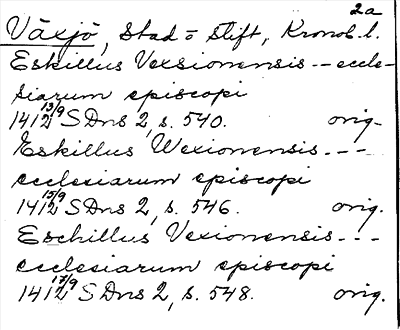 2a
Växjö, Stad o Stift, Kronob. l.
Eskillus Vexsionensis -- eccle-
siarum episcopi
1412 13/9 SDns 2, s. 540. orig.
Eskillus Wexionensis ---
ecclesiarum episcopi
1412 15/9 SDns 2, s. 546. orig.
Eschillus Vexionensis ---
ecclesiarum episcopi
1412 17/9 SDns 2, s. 548. orig.